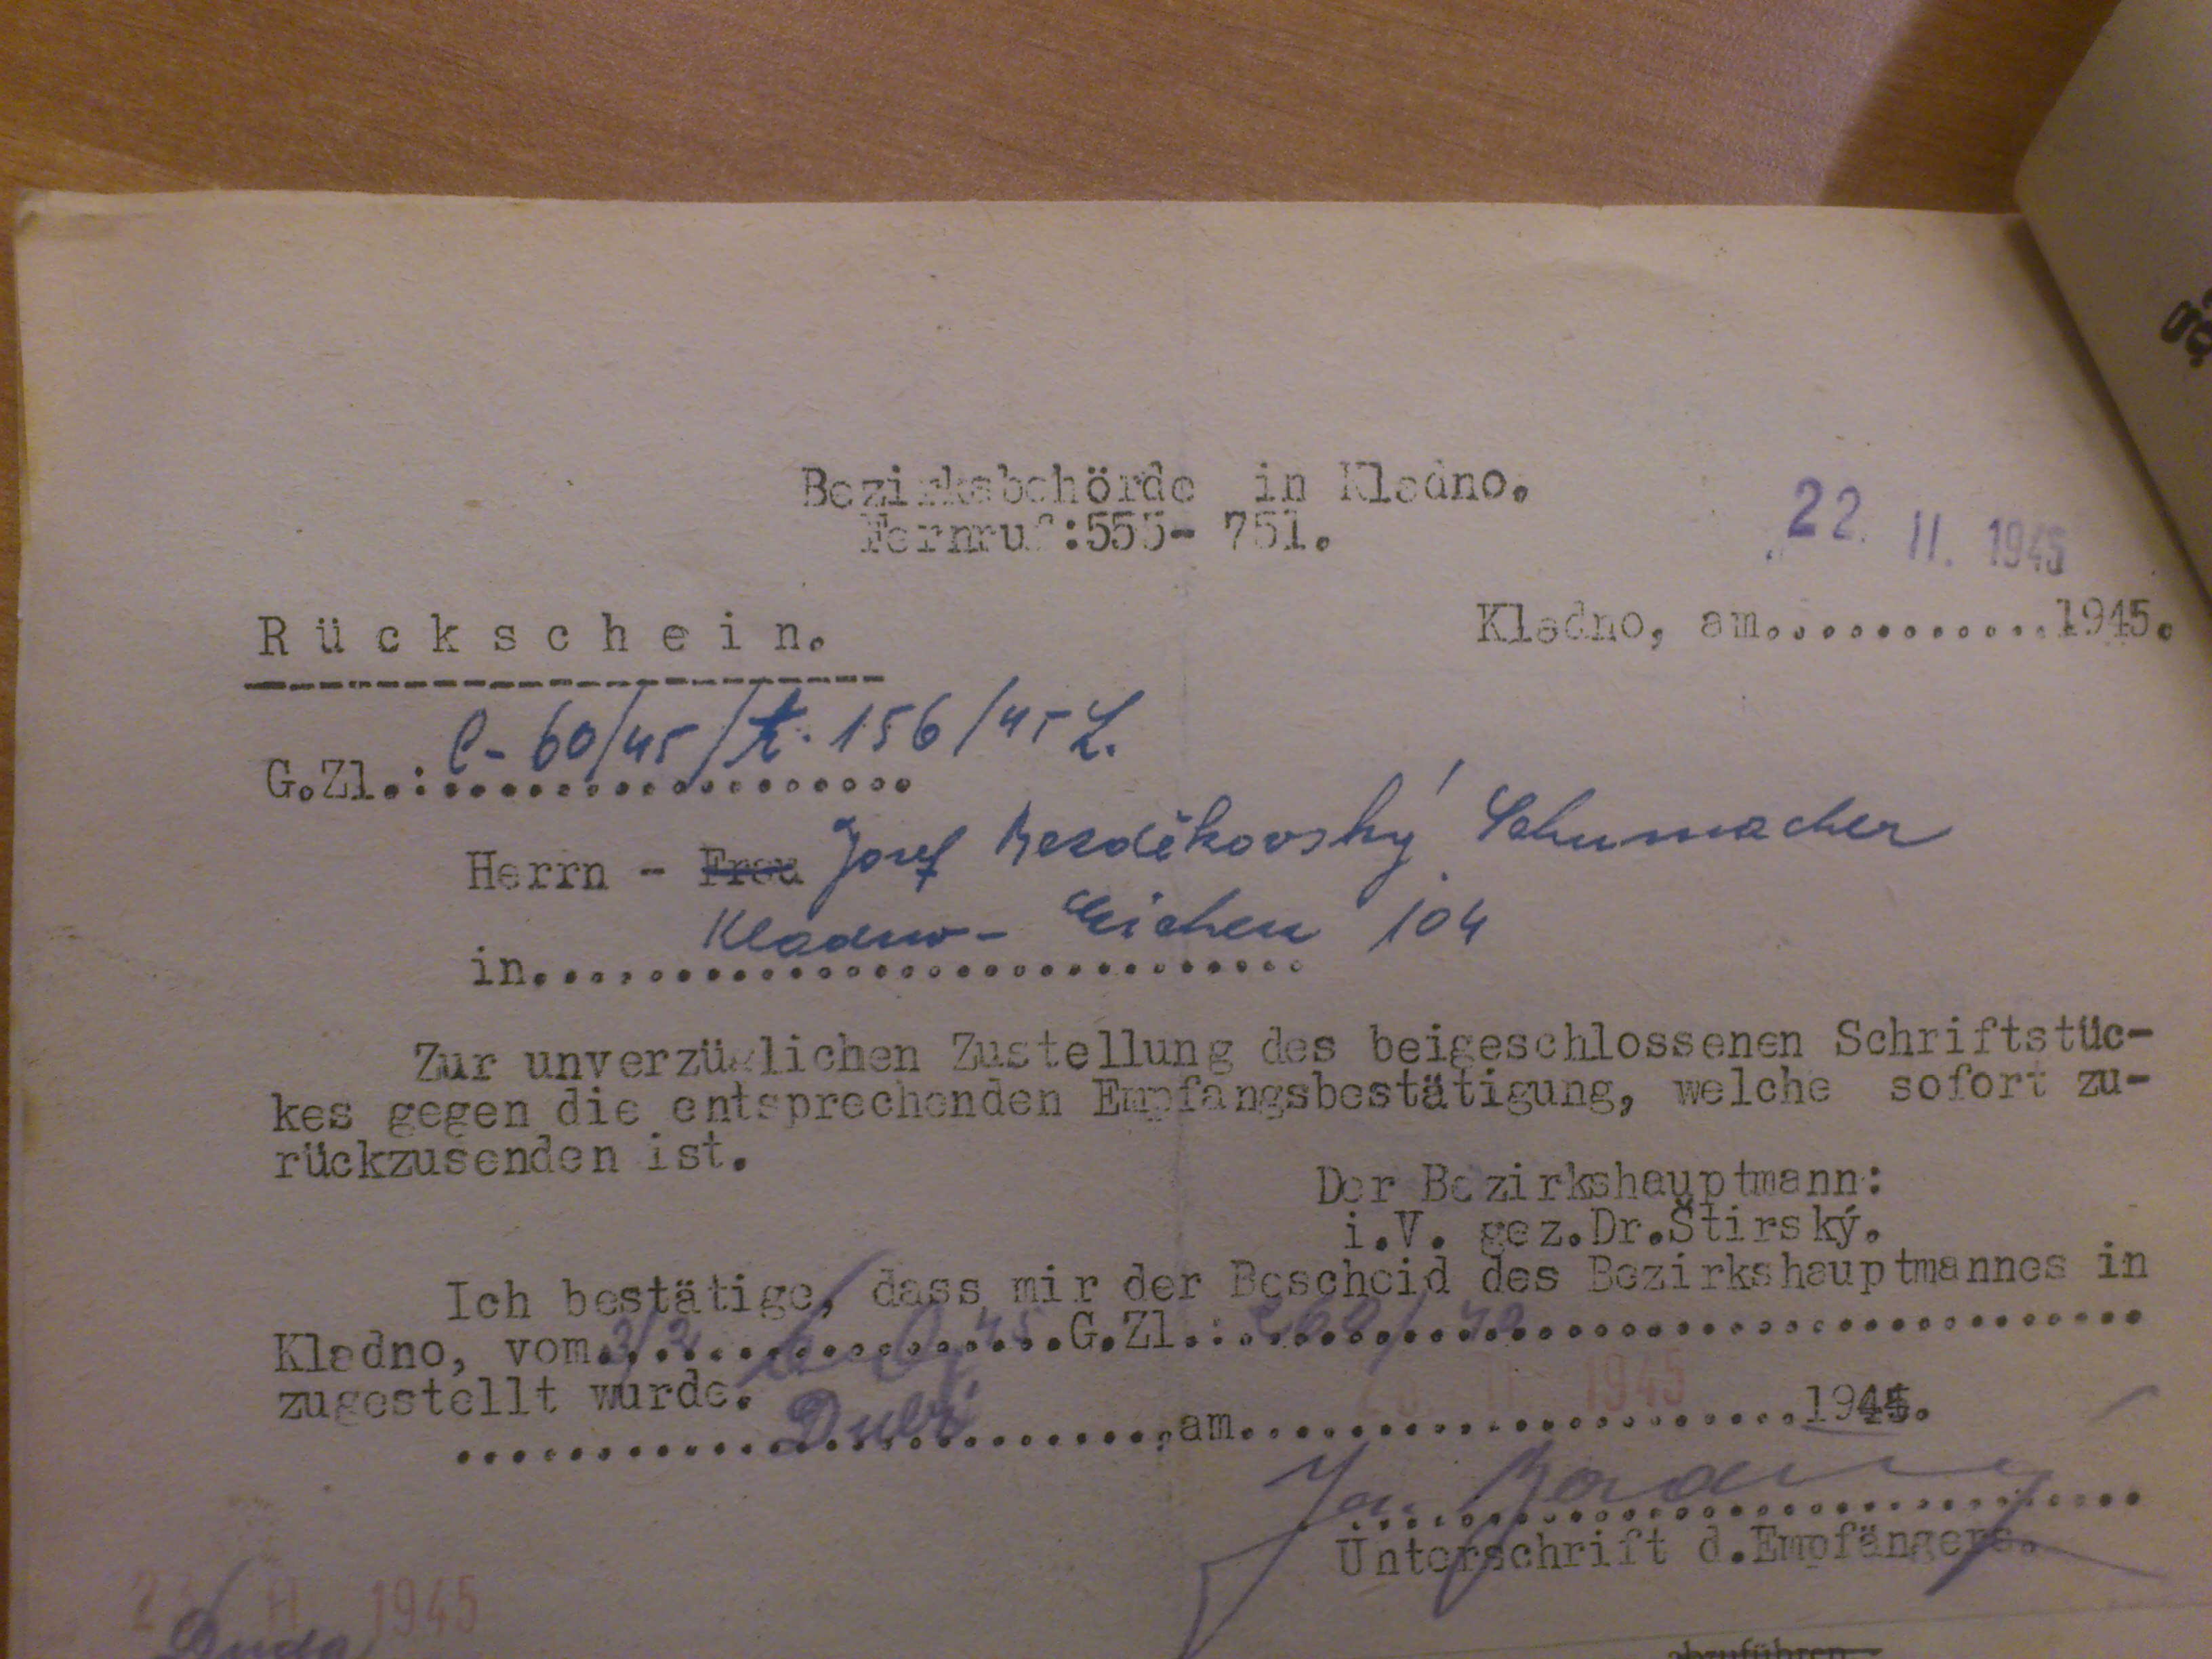 Bezirksbehörde in Kladno.
Fernruf:555- 751.
22. II. 1945
Kladno, am.............1945.
Rückschein.
G.Zl.: C-60/45/ 156/45 L.
Herrn - Frau Josef Bezděkovský Schumacher
in Kladno- Eichen 104
Zur unverzüglichen Zustellung des beigeschlossenen Schriftstüc-
kes gegen die entsprechenden Empfangsbestätigung, welche sofort zu-
rückzusenden ist.
Der Bezirkshauptmann:
i.V. gez.Dr.Štirský.
Ich bestätige, dass mir der Bescheid des Bezirkshauptmannes in
Kladno, vom 45 G.Zl.:
zugestellt wurde. II. 1945
Dubí ,am....................1945.
Unterschrift d.Empfängers.
II 1945
abzuführen